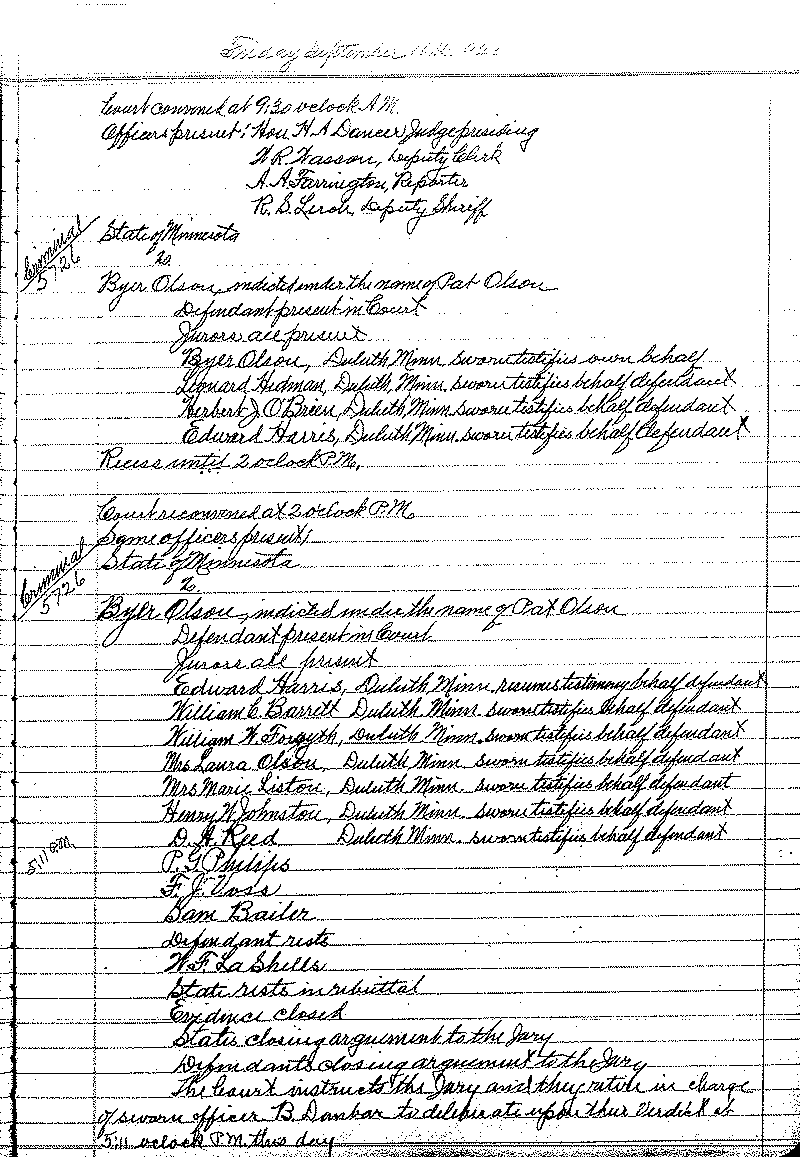 Friday September
Court convened at 9:30 oclock A.M.
Officers present: Hon. H A Dancer, Judge presiding
W.R. Wasson, Deputy Clerk
A.A. Farrington, Reporter
R.S. Lerch, Deputy Sheriff
Criminal
5726
State of Minnesota
vs.
Byer Olson, indicted under the name of Pat Olson
Defendant present in Court
Jurors all present
Byer Olson, Duluth, Minn. sworn testifies own behalf
Leonard Hidman, Duluth, Minn. sworn testifies behalf defendant
Herbert J. O'Brien, Duluth, Minn. sworn testifies behalf defendant
Edward Harris, Duluth Minn. sworn testifies behalf defendant
Recess until 2 oclock P.M.
Court reconvened at 2 oclock P.M.
Same officers present
Criminal
5726
State of Minnesota
vs
Byer Olson, indicted under the name of Pat Olson
Defendant present in Court
Jurors all present
Edward Harris, Duluth, Minn. resumes testimony behalf defendant
William C. Barrett Duluth Minn. sworn testifies behalf defendant
William W. Forsyth, Duluth Minn. sworn testifies behalf defendant
Mrs Laura Olson, Duluth Minn. sworn testifies behalf defendant
Mrs Marie Liston, Duluth Minn. sworn testifies behalf defendant
Henry W. Johnston, Duluth Minn. sworn testifies behalf defendant
D. H. Reed Duluth Minn. sworn testifies behalf defendant
5:11 P.M.
P. G. Philips
F. J. Voss
Sam Bailer
Defendant rests
W. F. La Shells
State rests in rebuttal
Evidence closed
States closing arguement to the Jury
Defendants closing arguement to the Jury
The Court instructs the Jury and they retire in charge
of sworn officer B. Dunbar to deliberate upon their Verdict at
5:11 oclock P.M. this day